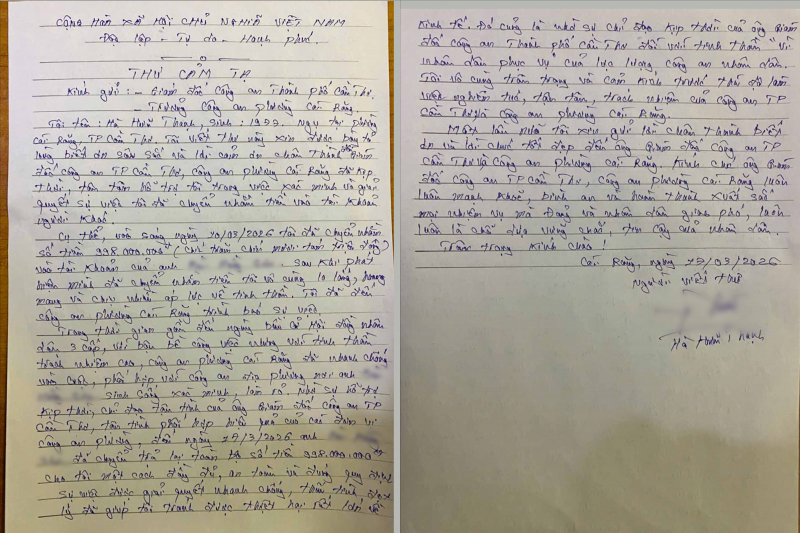 CỘNG HOÀ XÃ HỘI CHỦ NGHĨA VIỆT NAM
Độc lập - Tự do - Hạnh phúc.
THƯ CẢM TẠ
Kính gửi: - Giám đốc Công an Thành phố Cần Thơ.
- Trưởng Công an phường Cái Răng.
Tôi tên: Hà Huấn Thanh, Sinh: 1977. Ngụ tại phường
Cái Răng, TP Cần Thơ. Tôi viết thư này xin được bày tỏ
lòng biết ơn sâu sắc và lời cảm ơn chân thành Giám
đốc công an TP Cần Thơ, Công an phường Cái Răng đã kịp
thời, tận tâm hỗ trợ tôi trong việc xác minh và giải
quyết sự việc tôi đã chuyển nhầm tiền vào tài khoản
người khác!
Cụ thể, vào sáng ngày 10/03/2026 tôi đã chuyển nhầm
số tiền 998.000.000đ (Chín trăm chín mươi tám triệu đồng)
vào tài khoản của anh
. Sau khi phát
hiện mình đã chuyển nhầm tiền tôi vô cùng lo lắng, hoang
mang và chịu nhiều áp lực về tinh thần. Tôi đã đến
công an phường Cái Răng trình báo sự việc.
Trong thời gian gần đến ngày bầu cử Hội đồng nhân
dân 3 cấp, với bộn bề công việc nhưng với tinh thần
trách nhiệm cao, công an phường Cái Răng đã nhanh chóng
vào cuộc, phối hợp với công an địa phương nơi anh
sinh sống xác minh, làm rõ. Nhờ sự hỗ trợ
kịp thời, chỉ đạo tận tình của ông Giám đốc công an TP
Cần Thơ, tận tình phối hợp hiệu quả của các đơn vị
công an phường, đến ngày 17/3/2026 anh
đã chuyển trả lại toàn bộ số tiền 998.000.000đ
cho tôi một cách đầy đủ, an toàn và đúng quy định
Sự việc được giải quyết nhanh chóng, thấu tình, đạt
lý đã giúp tôi tránh được thiệt hại rất lớn về
Kinh tế. Đó cũng là nhờ sự chỉ đạo kịp thời của ông Giám
đốc công an Thành phố Cần Thơ đối với tinh thần "Vì
nhân dân phục vụ" của lực lượng công an nhân dân.
Tôi vô cùng trân trọng và cảm kích trước thái độ làm
việc nghiêm túc, tận tâm, trách nhiệm của công an TP
Cần Thơ và Công an phường Cái Răng.
Một lần nữa tôi xin gửi lời chân thành biết
ơn và lời chúc tốt đẹp đến ông Giám đốc công an TP
Cần Thơ, Công an phường Cái Răng. Kính chúc ông Giám
đốc công an TP Cần Thơ, công an phường Cái Răng luôn
luôn mạnh khoẻ, bình an và hoàn thành xuất sắc
mọi nhiệm vụ mà Đảng và nhân dân giao phó, luôn
luôn là chỗ dựa vững chắc, tin cậy của nhân dân.
Trân trọng kính chào!
Cái Răng, ngày 17/03/2026
Người viết thư
Hà Huấn Thanh